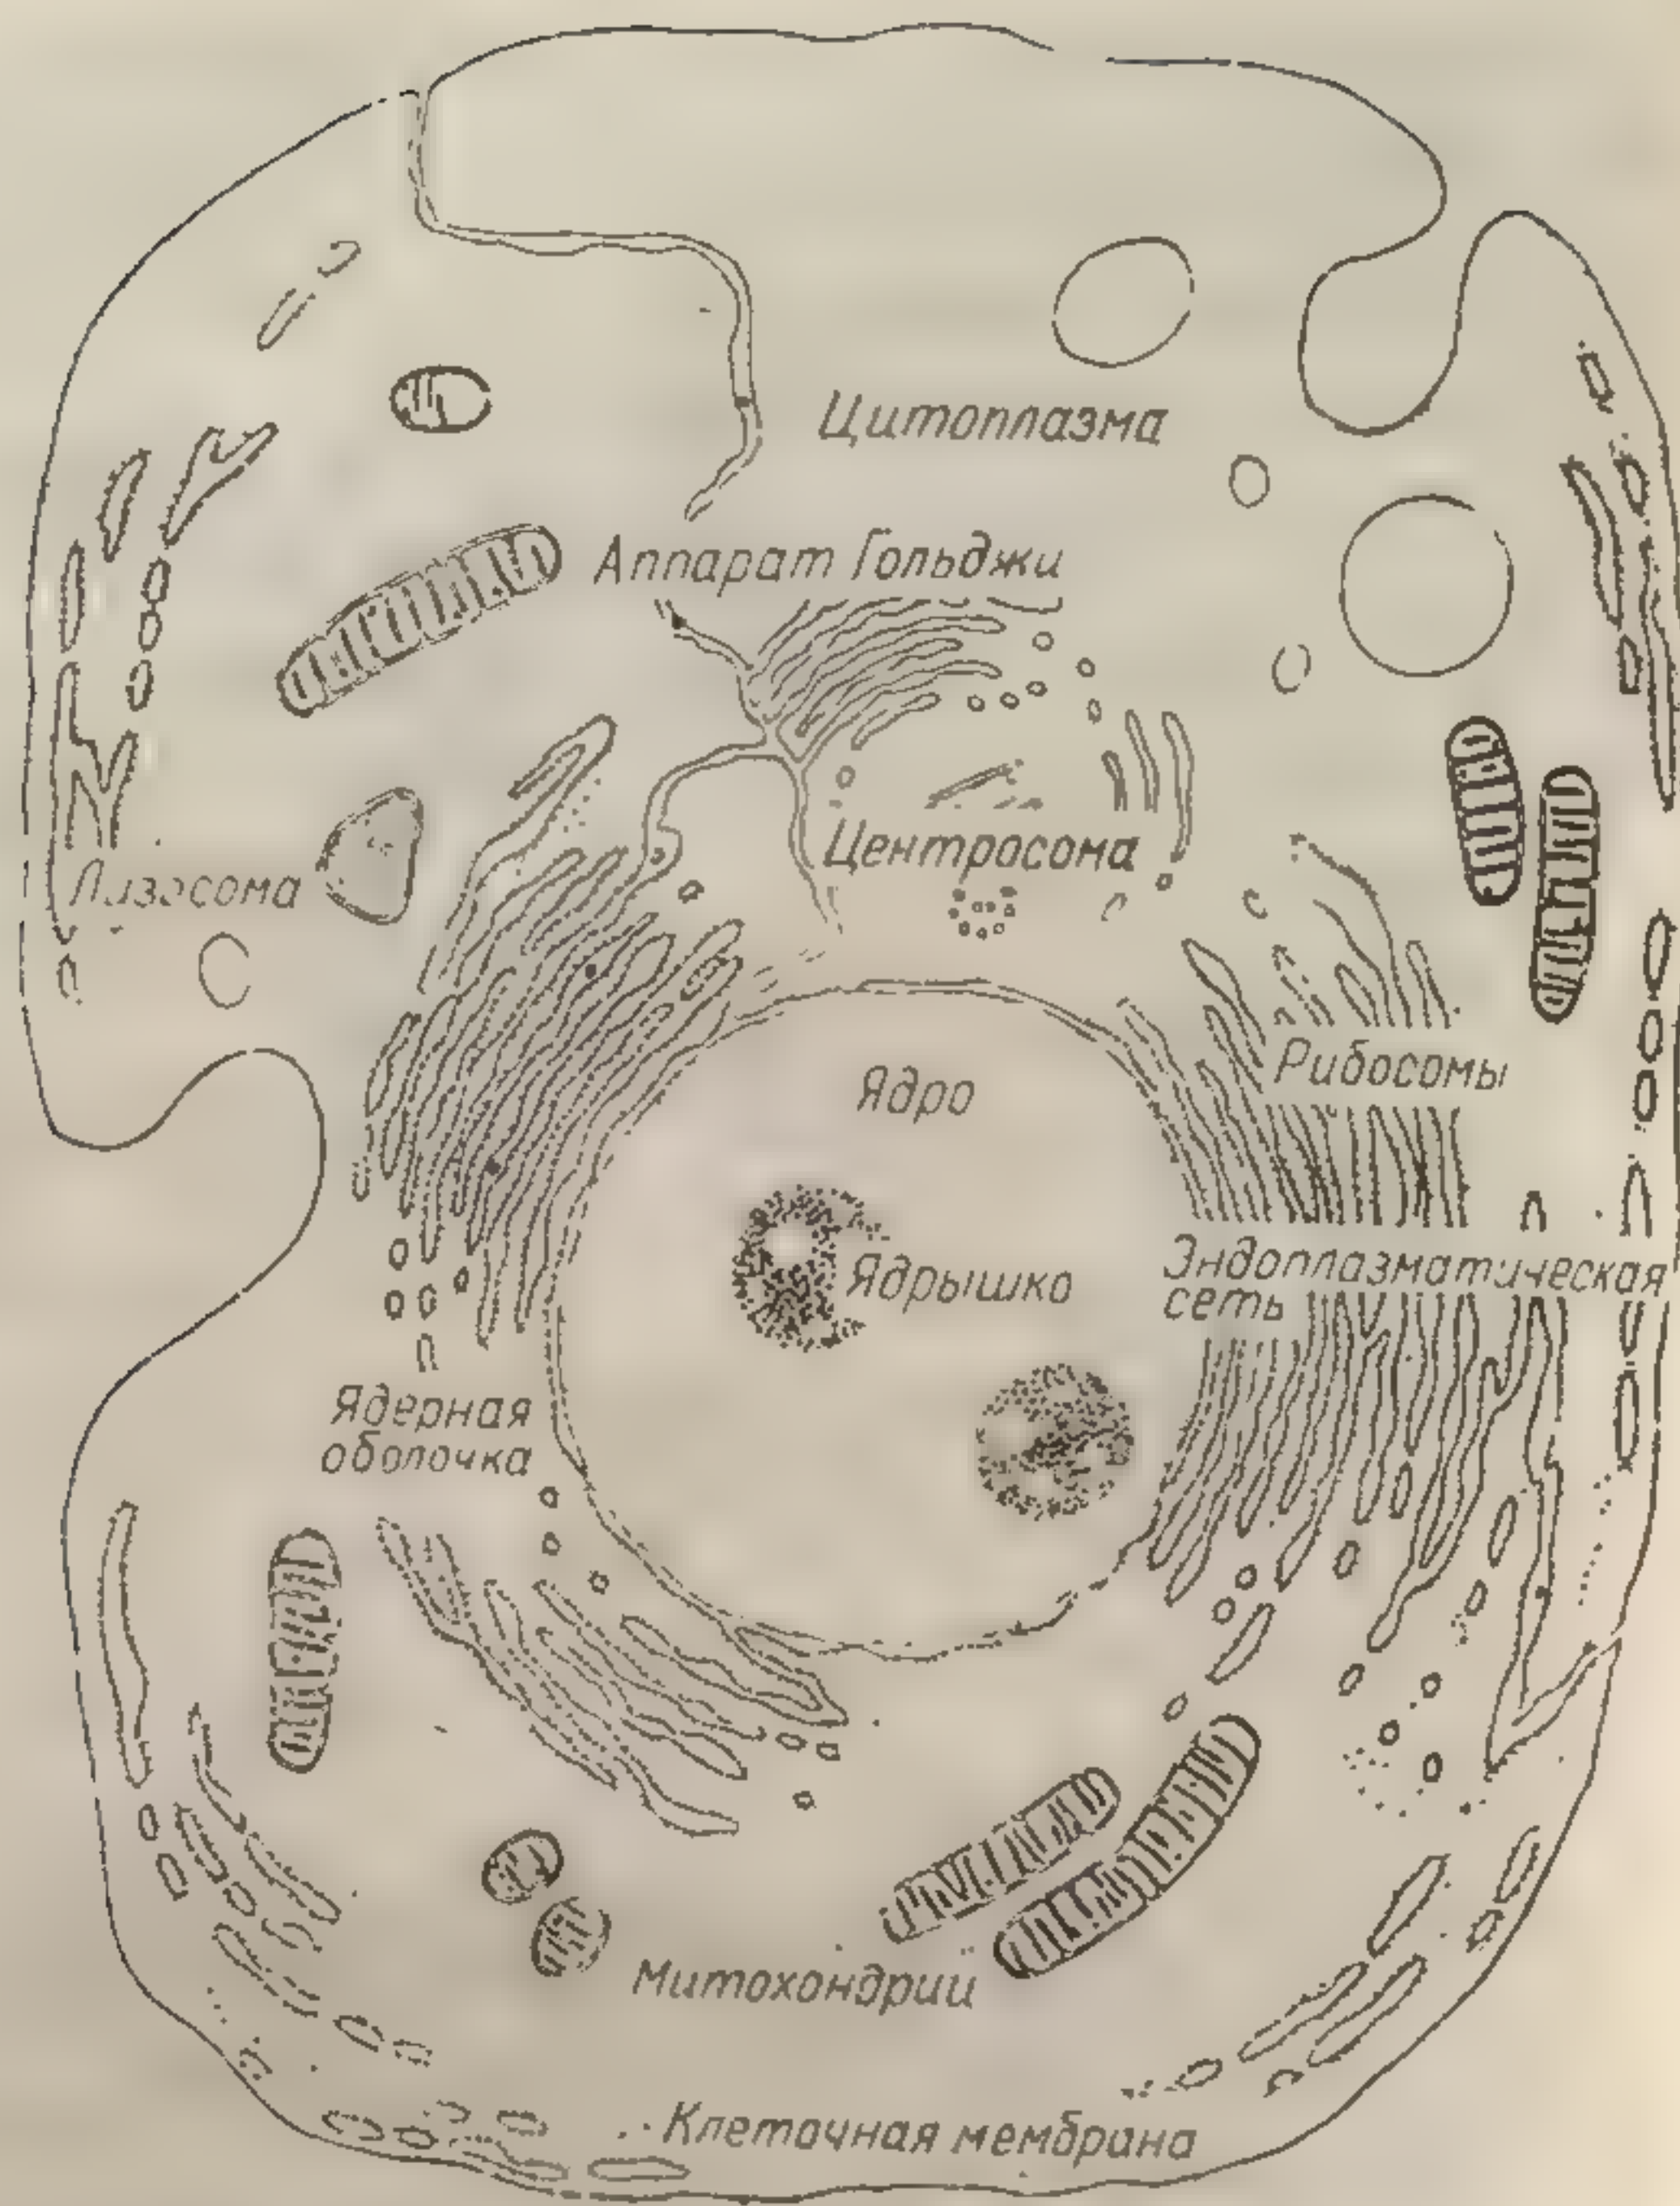 Цитоплазма
Аппарат Гольджи
Центросома
Лизосома
Рибосомы
Ядро
Ядрышко
Эндоплазматическая
сеть
Ядерная
оболочка
Митохондрии
Клеточная мембрана